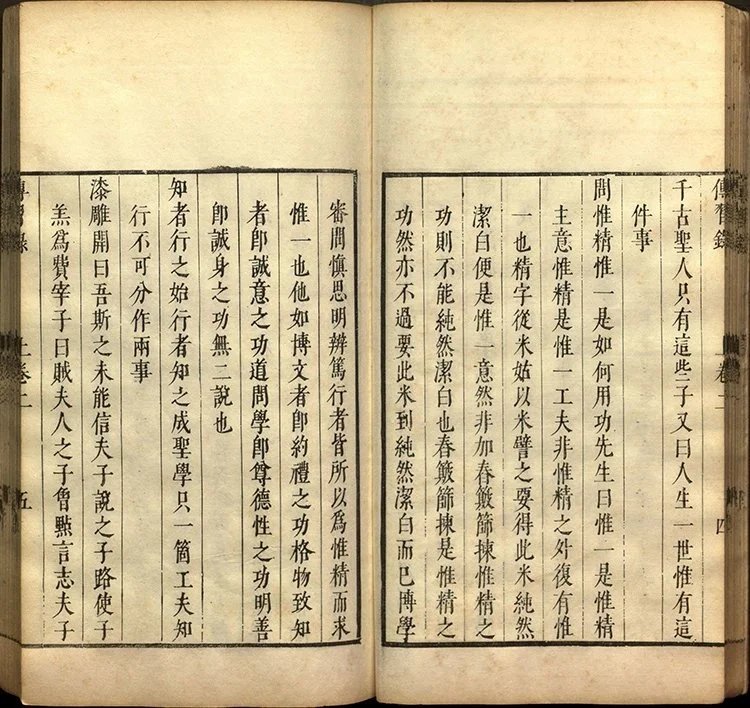 傳習錄 上卷二 四
千古聖人只有這些子又曰人生一世惟有這
件事
問惟精惟一是如何用功先生曰惟一是惟精
主意惟精是惟一工夫非惟精之外復有惟
一也精字從米姑以米譬之要得此米純然
潔白便是惟一意然非加舂簸篩揀惟精之
功則不能純然潔白也舂簸篩揀是惟精之
功然亦不過要此米到純然潔白而已博學
審問慎思明辨篤行者皆所以爲惟精而求
惟一也他如博文者卽約禮之功格物致知
者卽誠意之功道問學卽尊德性之功明善
卽誠身之功無二說也
知者行之始行者知之成聖學只一箇工夫知
行不可分作兩事
漆雕開曰吾斯之未能信夫子說之子路使子
羔爲費宰子曰賊夫人之子曾點言志夫子
傳習錄 上卷二 五